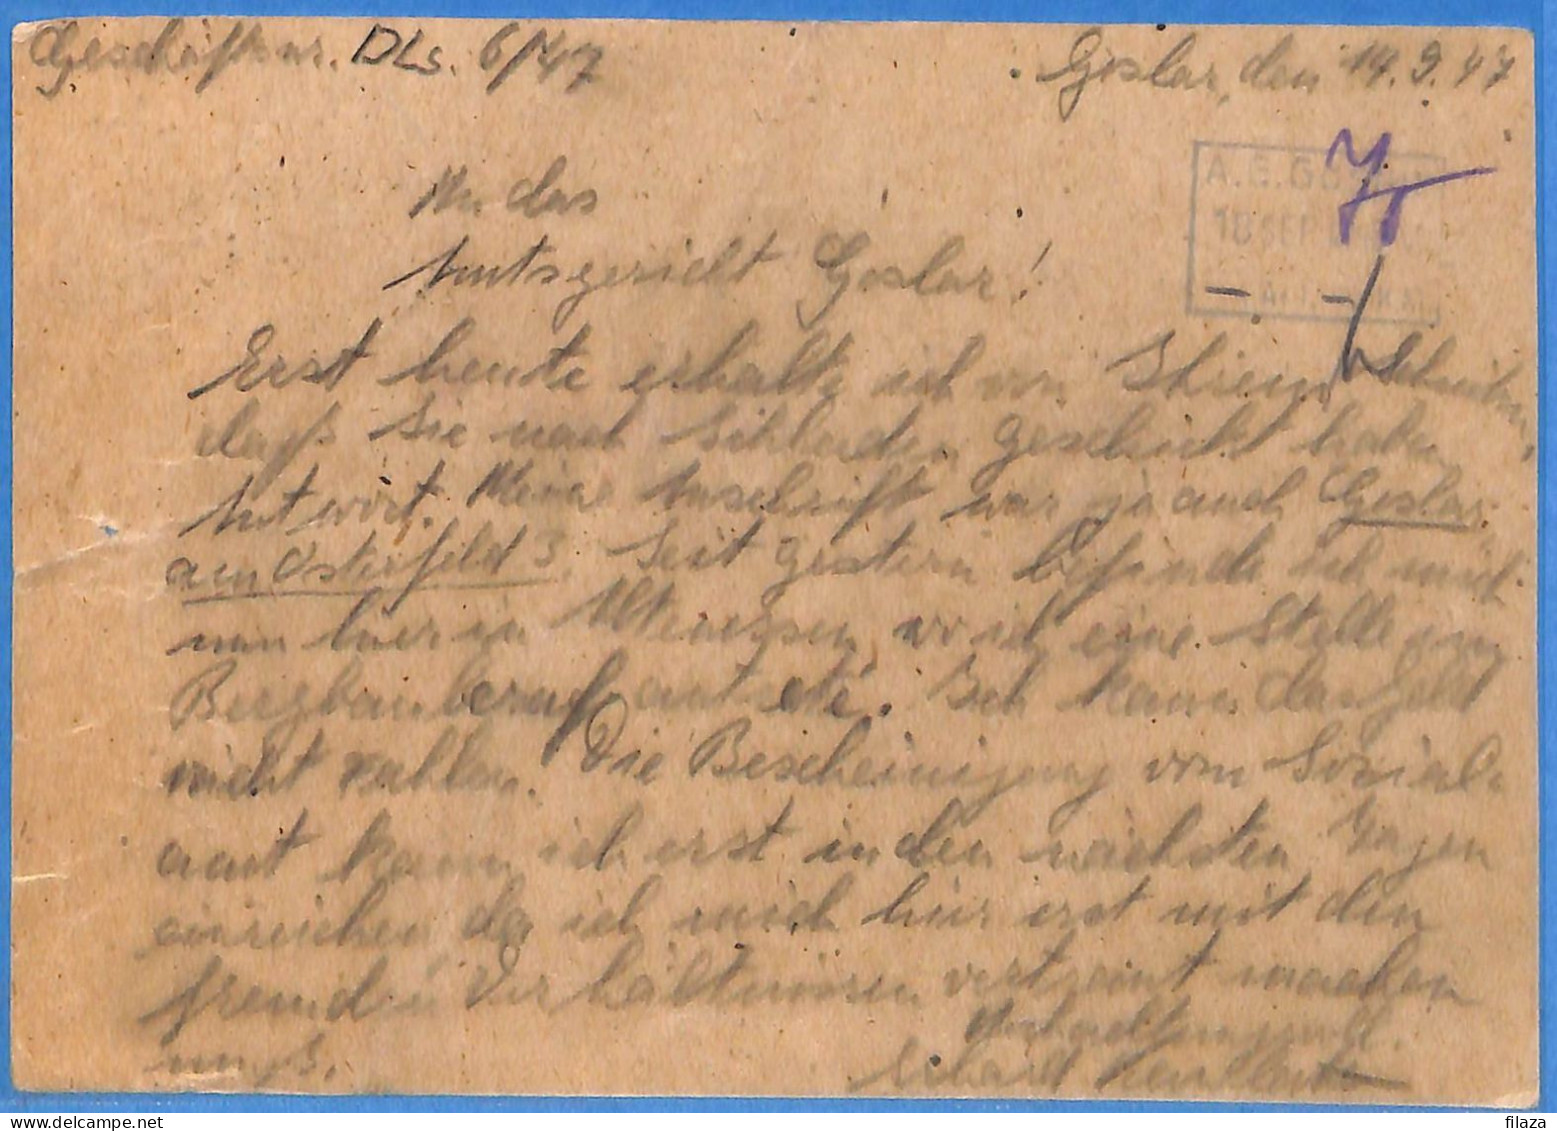 Geschäftsnr. DLs. 6/47
Goslar, den 14.9.47
A.E.GO
18 SEP
An das
Amtsgericht Goslar!
Erst heute erhalte ich von Ihrem Schreiben,
daß Sie nach geschickt haben
Antwort. Meine Anschrift war ja auch Goslar,
am Osterfeld 3. Seit gestern befinde ich mich
nun hier in Altenessen, wo ich eine Stelle im
Bergbauberuf antrete. Ich kann das Geld
nicht zahlen. Die Bescheinigung vom Sozial-
amt kann ich erst in den nächsten Tagen
einreichen, da ich mich hier erst mit den
fremden Verhältnissen vertraut machen
muß.
Hochachtungsvoll